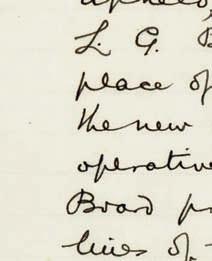 upheld,
L. G. B
place of
the new
operative
Board p
lines of